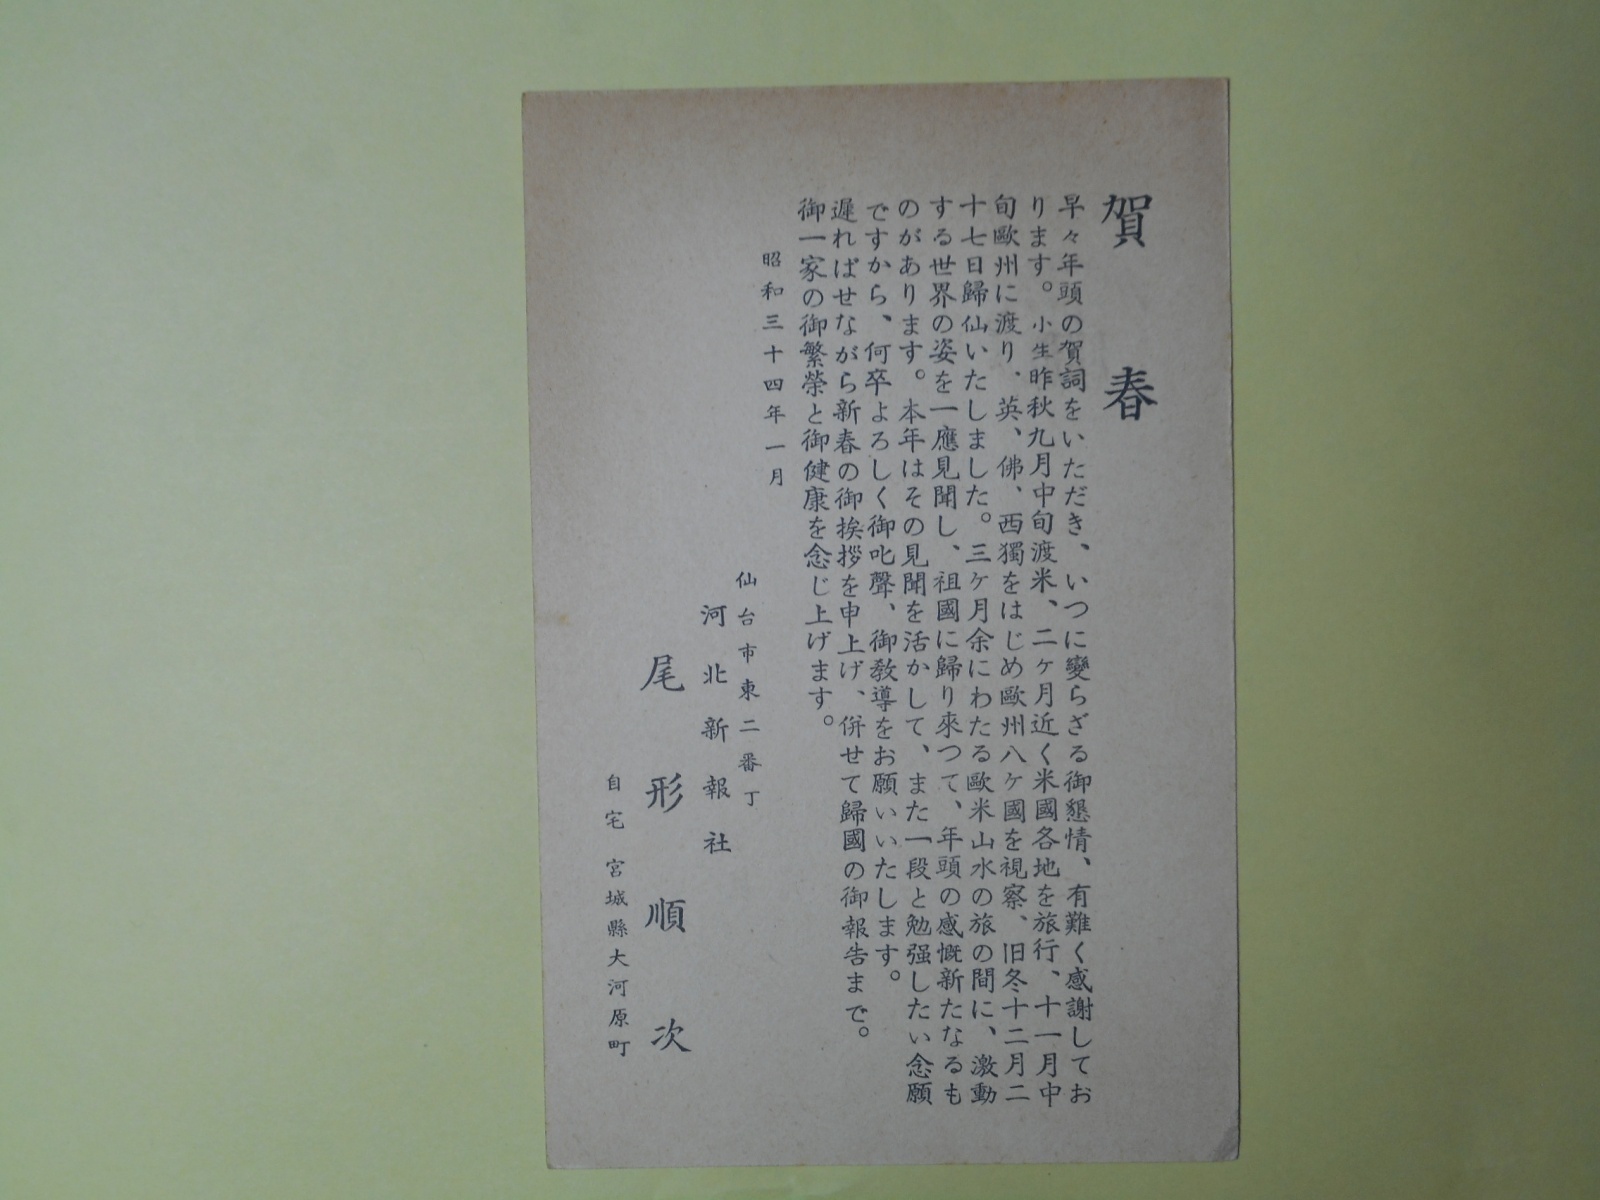 賀春
早々年頭の賀詞をいただき、いつに變らざる御懇情、有難く感謝してお
ります。小生昨秋九月中旬渡米、二ヶ月近く米國各地を旅行、十一月中
旬歐州に渡り、英、佛、西獨をはじめ歐州八ケ國を視察、旧冬十二月二
十七日歸仙いたしました。三ケ月余にわたる歐米山水の旅の間に、激動
する世界の姿を一應見聞し、祖國に歸り來つて、年頭の感慨新たなるも
のがあります。本年はその見聞を活かして、また一段と勉强したい念願
ですから、何卒よろしく御叱聲、御敎導をお願いいたします。
遲ればせながら新春の御挨拶を申上げ、併せて歸國の御報告まで。
御一家の御繁榮と御健康を念じ上げます。
昭和三十四年一月
仙台市東二番丁
河北新報社
尾形順次
自宅 宮城縣大河原町